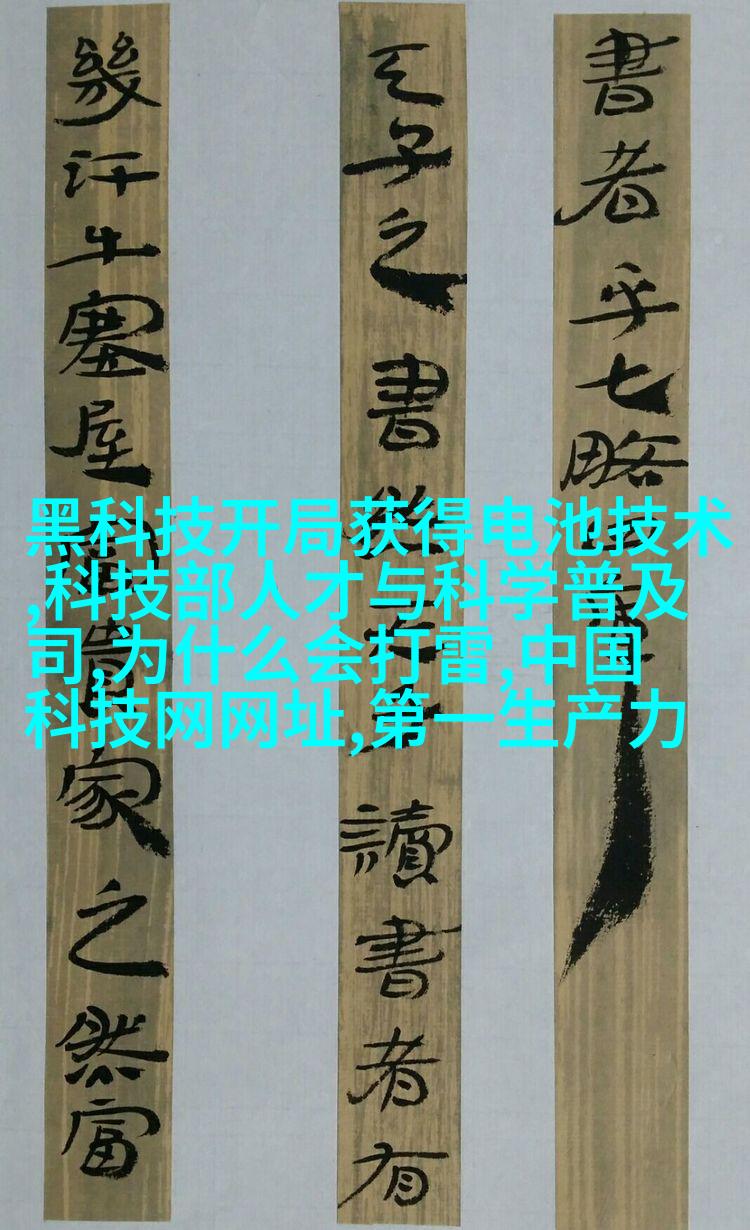 書者乎七略四庫
天子之書然天子讀書者有
幾汗牛塞屋富貴家之然富
黑科技开局获得电池技术
,科技部人才与科学普及
司,为什么会打雷,中国
科技网网址,第一生产力